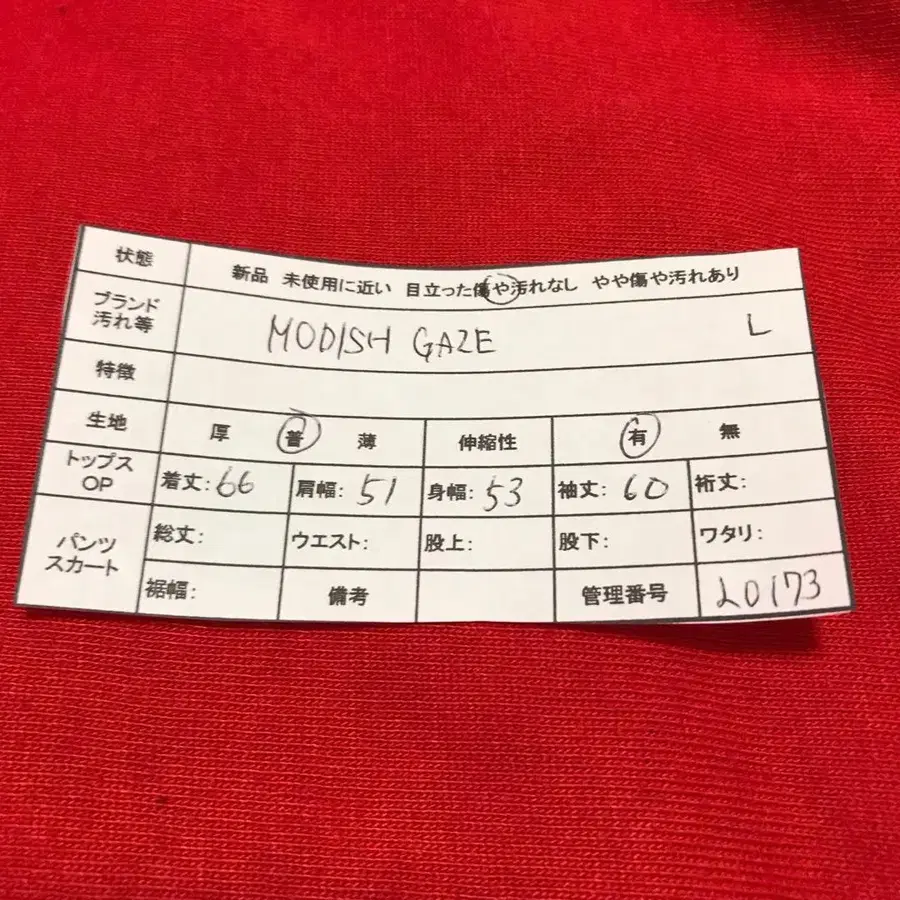 状態 新品 未使用に近い 目立った傷や汚れなし やや傷や汚れあり
ブランド
汚れ等 MODISH GAZE L
特徴
生地 厚 普 薄 伸縮性 有 無
トップス
OP 着丈:66 肩幅:51 身幅:53 袖丈:60 裄丈:
パンツ
スカート 総丈: ウエスト: 股上: 股下: ワタリ:
裾幅: 備考 管理番号 L0173